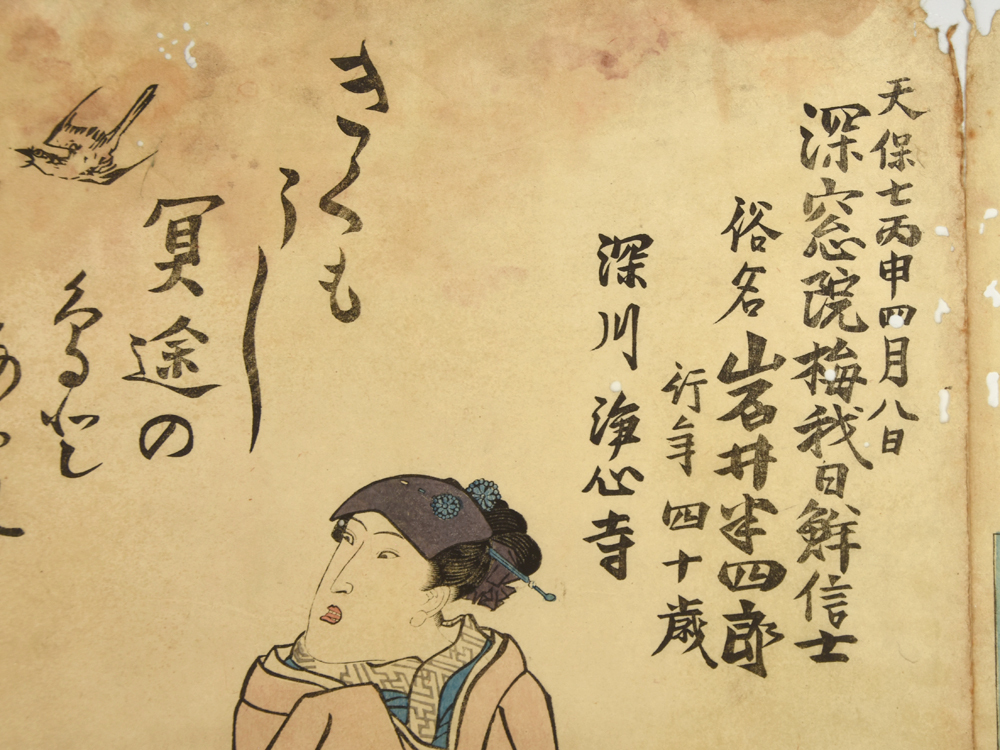 天保七丙申四月八日
深窓院梅我日鮮信士
俗名 岩井半四郎
行年 四十歳
深川 浄心寺
きくも
うし
冥途の
鳥と